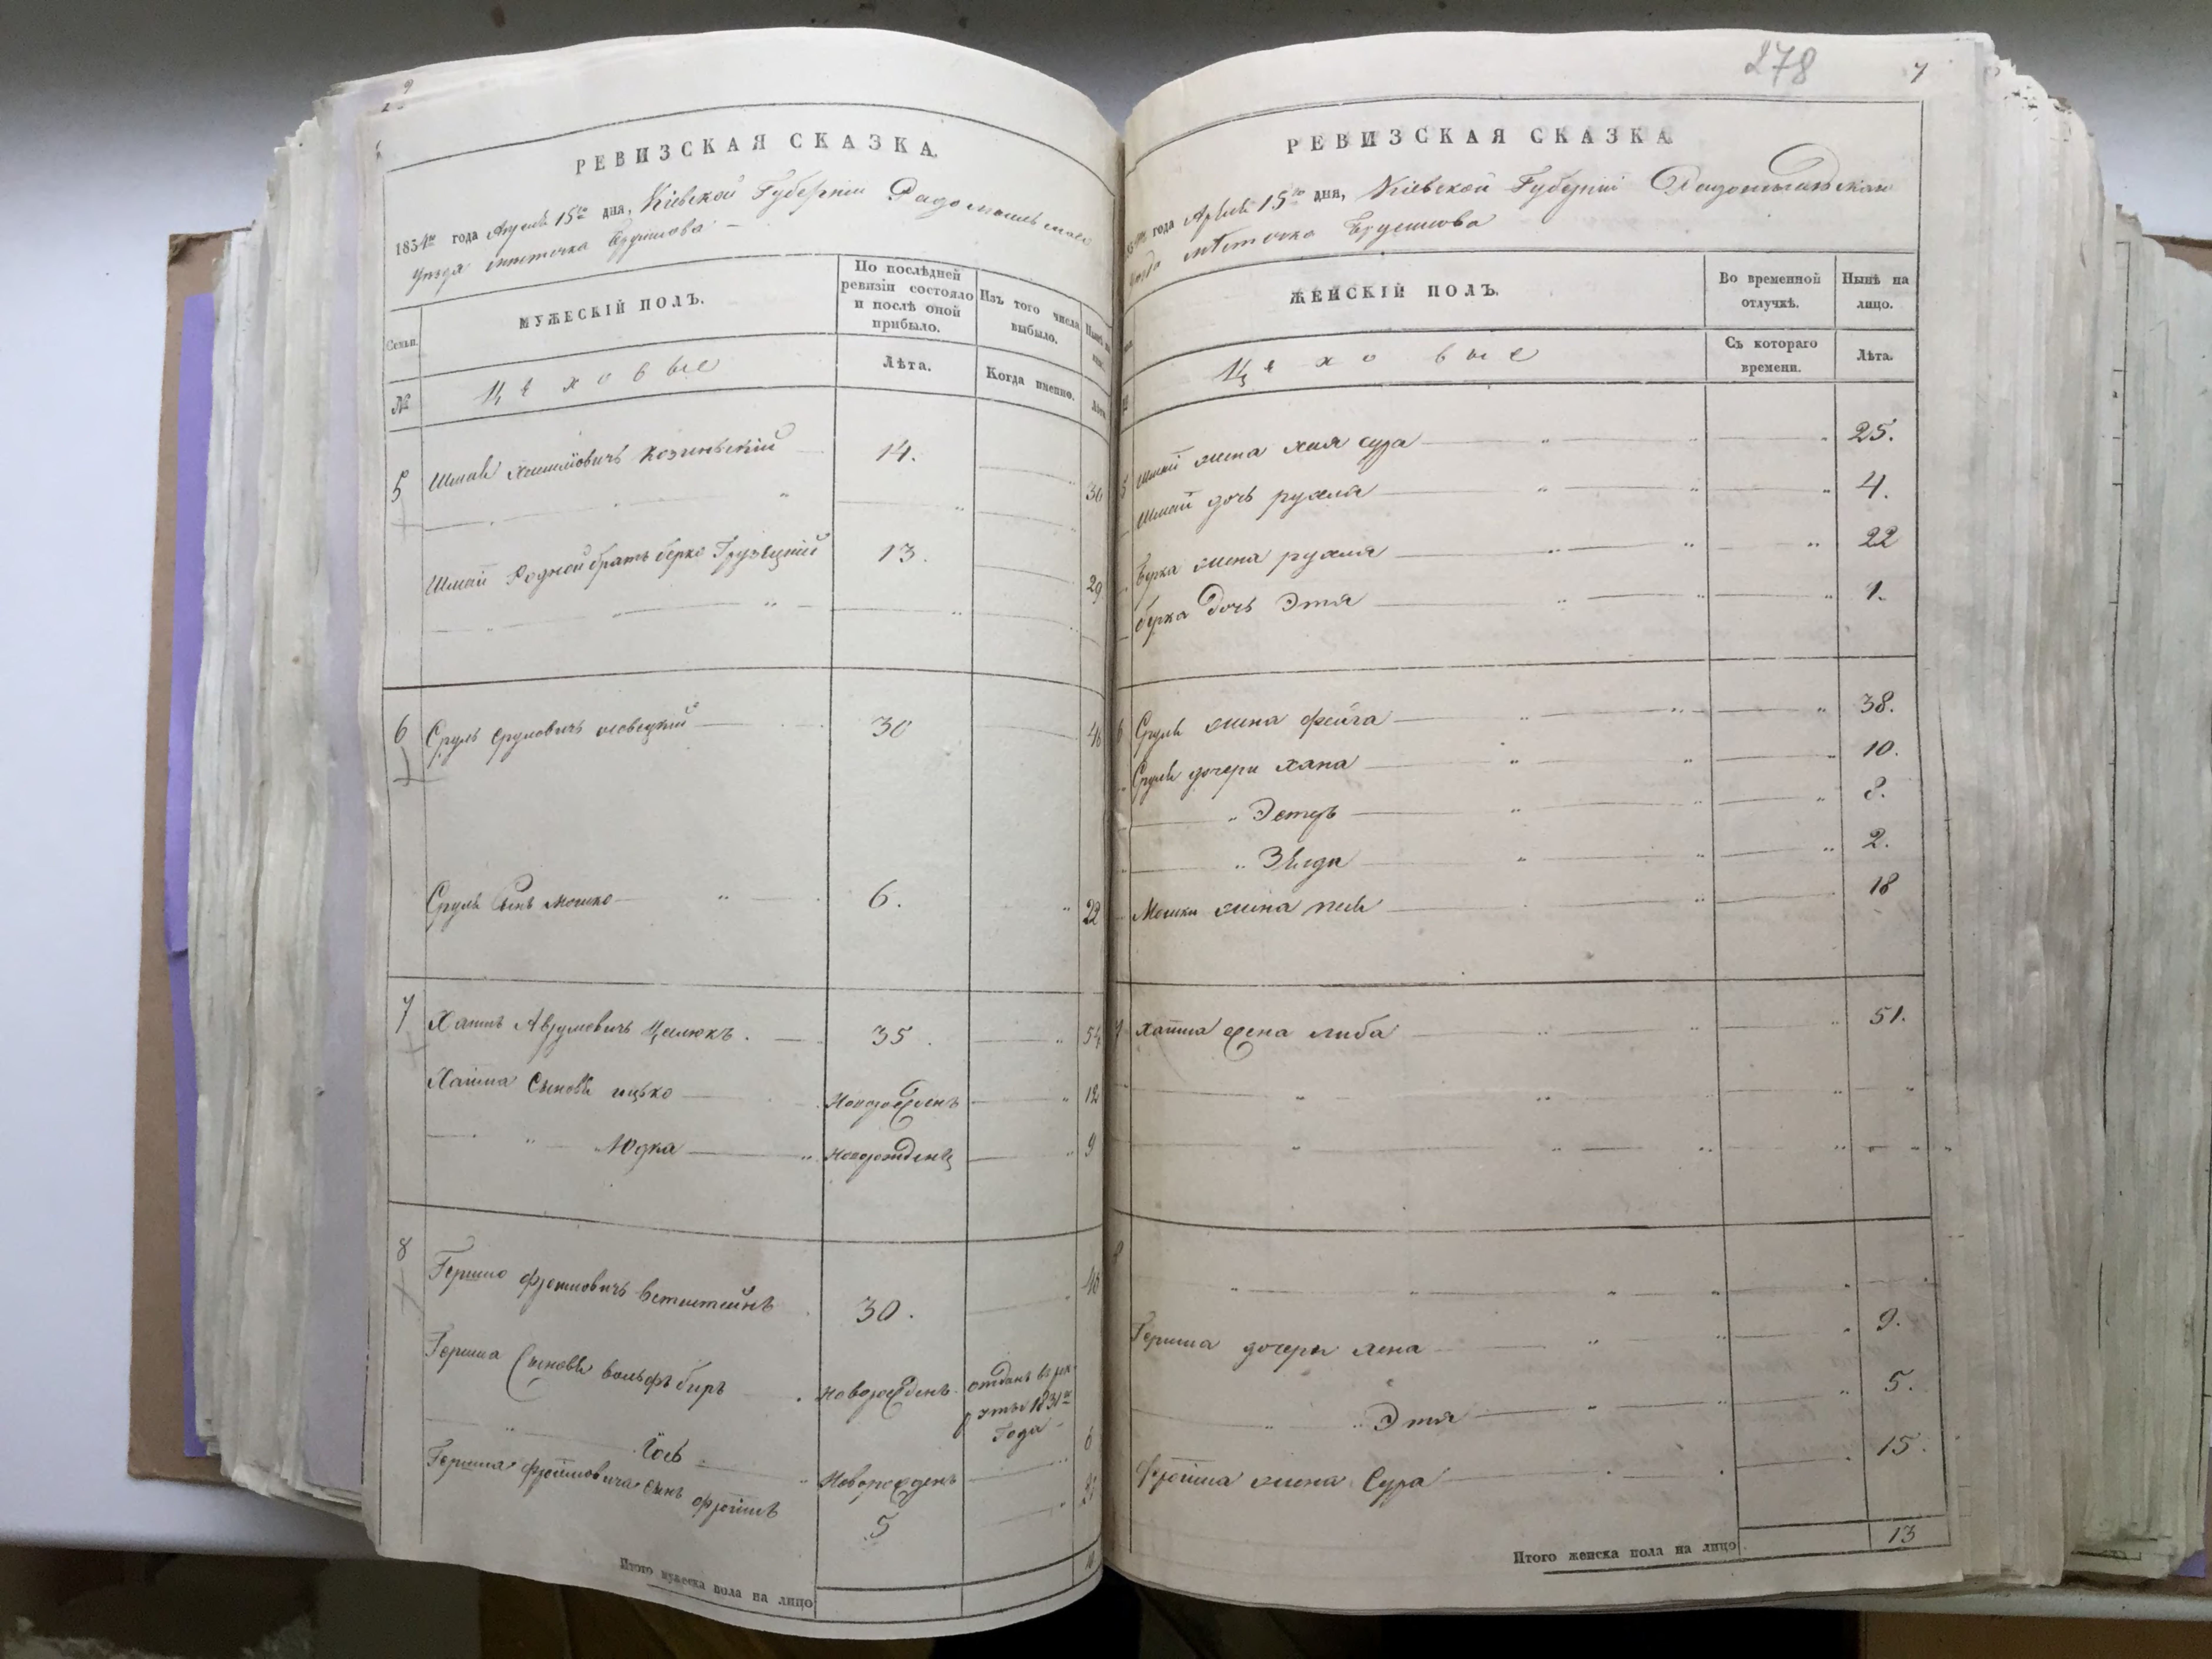 РЕВИЗСКАЯ СКАЗКА.
1834го года Апреля 15го дня, Кіевской Губерніи Радомышльскаго
уезда местечка Брусилова
Семьи.
МУЖЕСКІЙ ПОЛЪ.
По послѣдней ревизіи состояло и послѣ оной прибыло.
Изъ того числа выбыло.
Нынѣ на лицо.
№
Цеховые
Лѣта.
Когда именно.
Лѣта
5 Шмай Хаимовичъ Козинскій 14. 30
Шмаи Родной братъ берко Грузецкій 13. 29
6 Сруль Срулевичъ 30 46
Сруля Сынъ мошко 6. 22
7 Хаимъ Аврумовичъ 35 54
Хаима Сыновя ицько Новорожденъ 12
Юдка новорожденъ 9
8 Гершко Фроимовичъ 30. 46
Гершка Сыновя вольфъ беръ Новорожденъ отданъ в рек
руты 1831го
года
Іось Новорожденъ 6
Гершка Фроимовича сынъ фроимъ 5
Итого мужеска пола на лицо
278
7
РЕВИЗСКАЯ СКАЗКА
года Апреля 15го дня, Кіевской Губерніи Радомышльскаго
уезда местечка Брусилова
ЖЕНСКІЙ ПОЛЪ.
Во временной отлучкѣ.
Нынѣ на лицо.
Цеховые
Съ котораго времени.
Лѣта.
5 Шмаи жена хая сура 25.
Шмаи дочь рухля 4.
Берка жена рухля 22
берка Дочь Этя 1.
6 Сруля жена фейга 38.
Сруля дочери хана 10.
Эстеръ 8.
Зелда 2.
Мошки жена 18
7 хаима жена либа 51.
8
Гершка дочери хена 9.
Этя 5.
Фроима жена Сура 15.
Итого женска пола на лицо 13